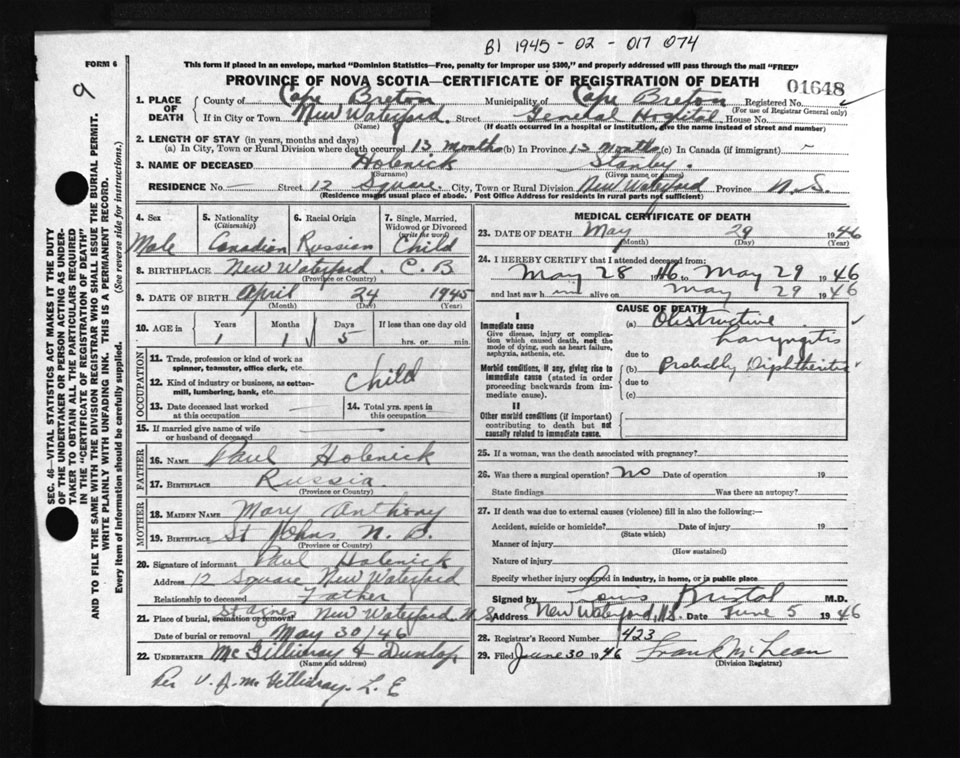 B1 1945 - 02 - 017 074
FORM 6
This form if placed in an envelope, marked "Dominion Statistics—Free, penalty for improper use $300," and properly addressed will pass through the mail "FREE"
PROVINCE OF NOVA SCOTIA—CERTIFICATE OF REGISTRATION OF DEATH
01648
9
1. PLACE OF DEATH
County of Cape Breton Municipality of Cape Breton Registered No.
(For use of Registrar General only)
If in City or Town New Waterford Street General Hospital House No.
(Name) (If death occurred in a hospital or institution, give the name instead of street and number)
2. LENGTH OF STAY (in years, months and days)
(a) In City, Town or Rural Division where death occurred 13 months (b) In Province 13 months (c) In Canada (if immigrant)
3. NAME OF DECEASED Holenick Stanley.
(Surname) (Given name or names)
RESIDENCE No. — Street 12 Square. City, Town or Rural Division New Waterford Province N.S.
(Residence means usual place of abode. Post Office Address for residents in rural parts not sufficient)
SEC. 46—VITAL STATISTICS ACT MAKES IT THE DUTY
OF THE UNDERTAKER OR PERSON ACTING AS UNDER-
TAKER TO OBTAIN ALL THE PARTICULARS REQUIRED
IN THE "CERTIFICATE OF REGISTRATION OF DEATH"
AND TO FILE THE SAME WITH THE DIVISION REGISTRAR WHO SHALL ISSUE THE BURIAL PERMIT.
WRITE PLAINLY WITH UNFADING INK. THIS IS A PERMANENT RECORD.
Every item of information should be carefully supplied. (See reverse side for instructions.)
4. Sex
Male
5. Nationality
(Citizenship)
Canadian
6. Racial Origin
Russian
7. Single, Married,
Widowed or Divorced
(write the word)
Child
8. BIRTHPLACE New Waterford. C.B.
(Province or Country)
9. DATE OF BIRTH April 24 1945
(Month) (Day) (Year)
10. AGE in Years Months Days If less than one day old
1 1 5 hrs. or min.
OCCUPATION
11. Trade, profession or kind of work as
spinner, teamster, office clerk, etc.
12. Kind of industry or business, as cotton-
mill, lumbering, bank, etc.
Child
13. Date deceased last worked
at this occupation
14. Total yrs. spent in
this occupation
15. If married give name of wife
or husband of deceased
FATHER
16. NAME Paul Holenick
17. BIRTHPLACE Russia.
(Province or Country)
MOTHER
18. MAIDEN NAME Mary Anthony
19. BIRTHPLACE St Johns N.B.
(Province or Country)
20. Signature of informant Paul Holenick
Address 12 Square New Waterford
Relationship to deceased Father
21. Place of burial, cremation or removal St Agnes New Waterford N.S.
Date of burial or removal May 30/46
22. UNDERTAKER McGillivray & Dunlop
(Name and address)
Per V. J. McGillivray. L. E
MEDICAL CERTIFICATE OF DEATH
23. DATE OF DEATH May 29 1946
(Month) (Day) (Year)
24. I HEREBY CERTIFY that I attended deceased from:
May 28 1946 to May 29 1946
and last saw h im alive on May 29 1946
CAUSE OF DEATH
I
Immediate cause
Give disease, injury or complica-
tion which caused death, not the
mode of dying, such as heart failure,
asphyxia, asthenia, etc.
(a) Obstructive
Laryngitis
due to
Morbid conditions, if any, giving rise to
immediate cause (stated in order
proceeding backwards from im-
mediate cause).
(b) Probably Diphtheritic
due to
(c)
II
Other morbid conditions (if important)
contributing to death but not
causally related to immediate cause.
25. If a woman, was the death associated with pregnancy?
26. Was there a surgical operation? no Date of operation 19
State findings Was there an autopsy?
27. If death was due to external causes (violence) fill in also the following:—
Accident, suicide or homicide? Date of injury 19
(State which)
Manner of injury
(How sustained)
Nature of injury
Specify whether injury occurred in industry, in home, or in public place
Signed by Louis Kristal M.D.
Address New Waterford, N.S. Date June 5 1946
28. Registrar's Record Number 423
29. Filed June 30 1946 Frank McLean
(Division Registrar)